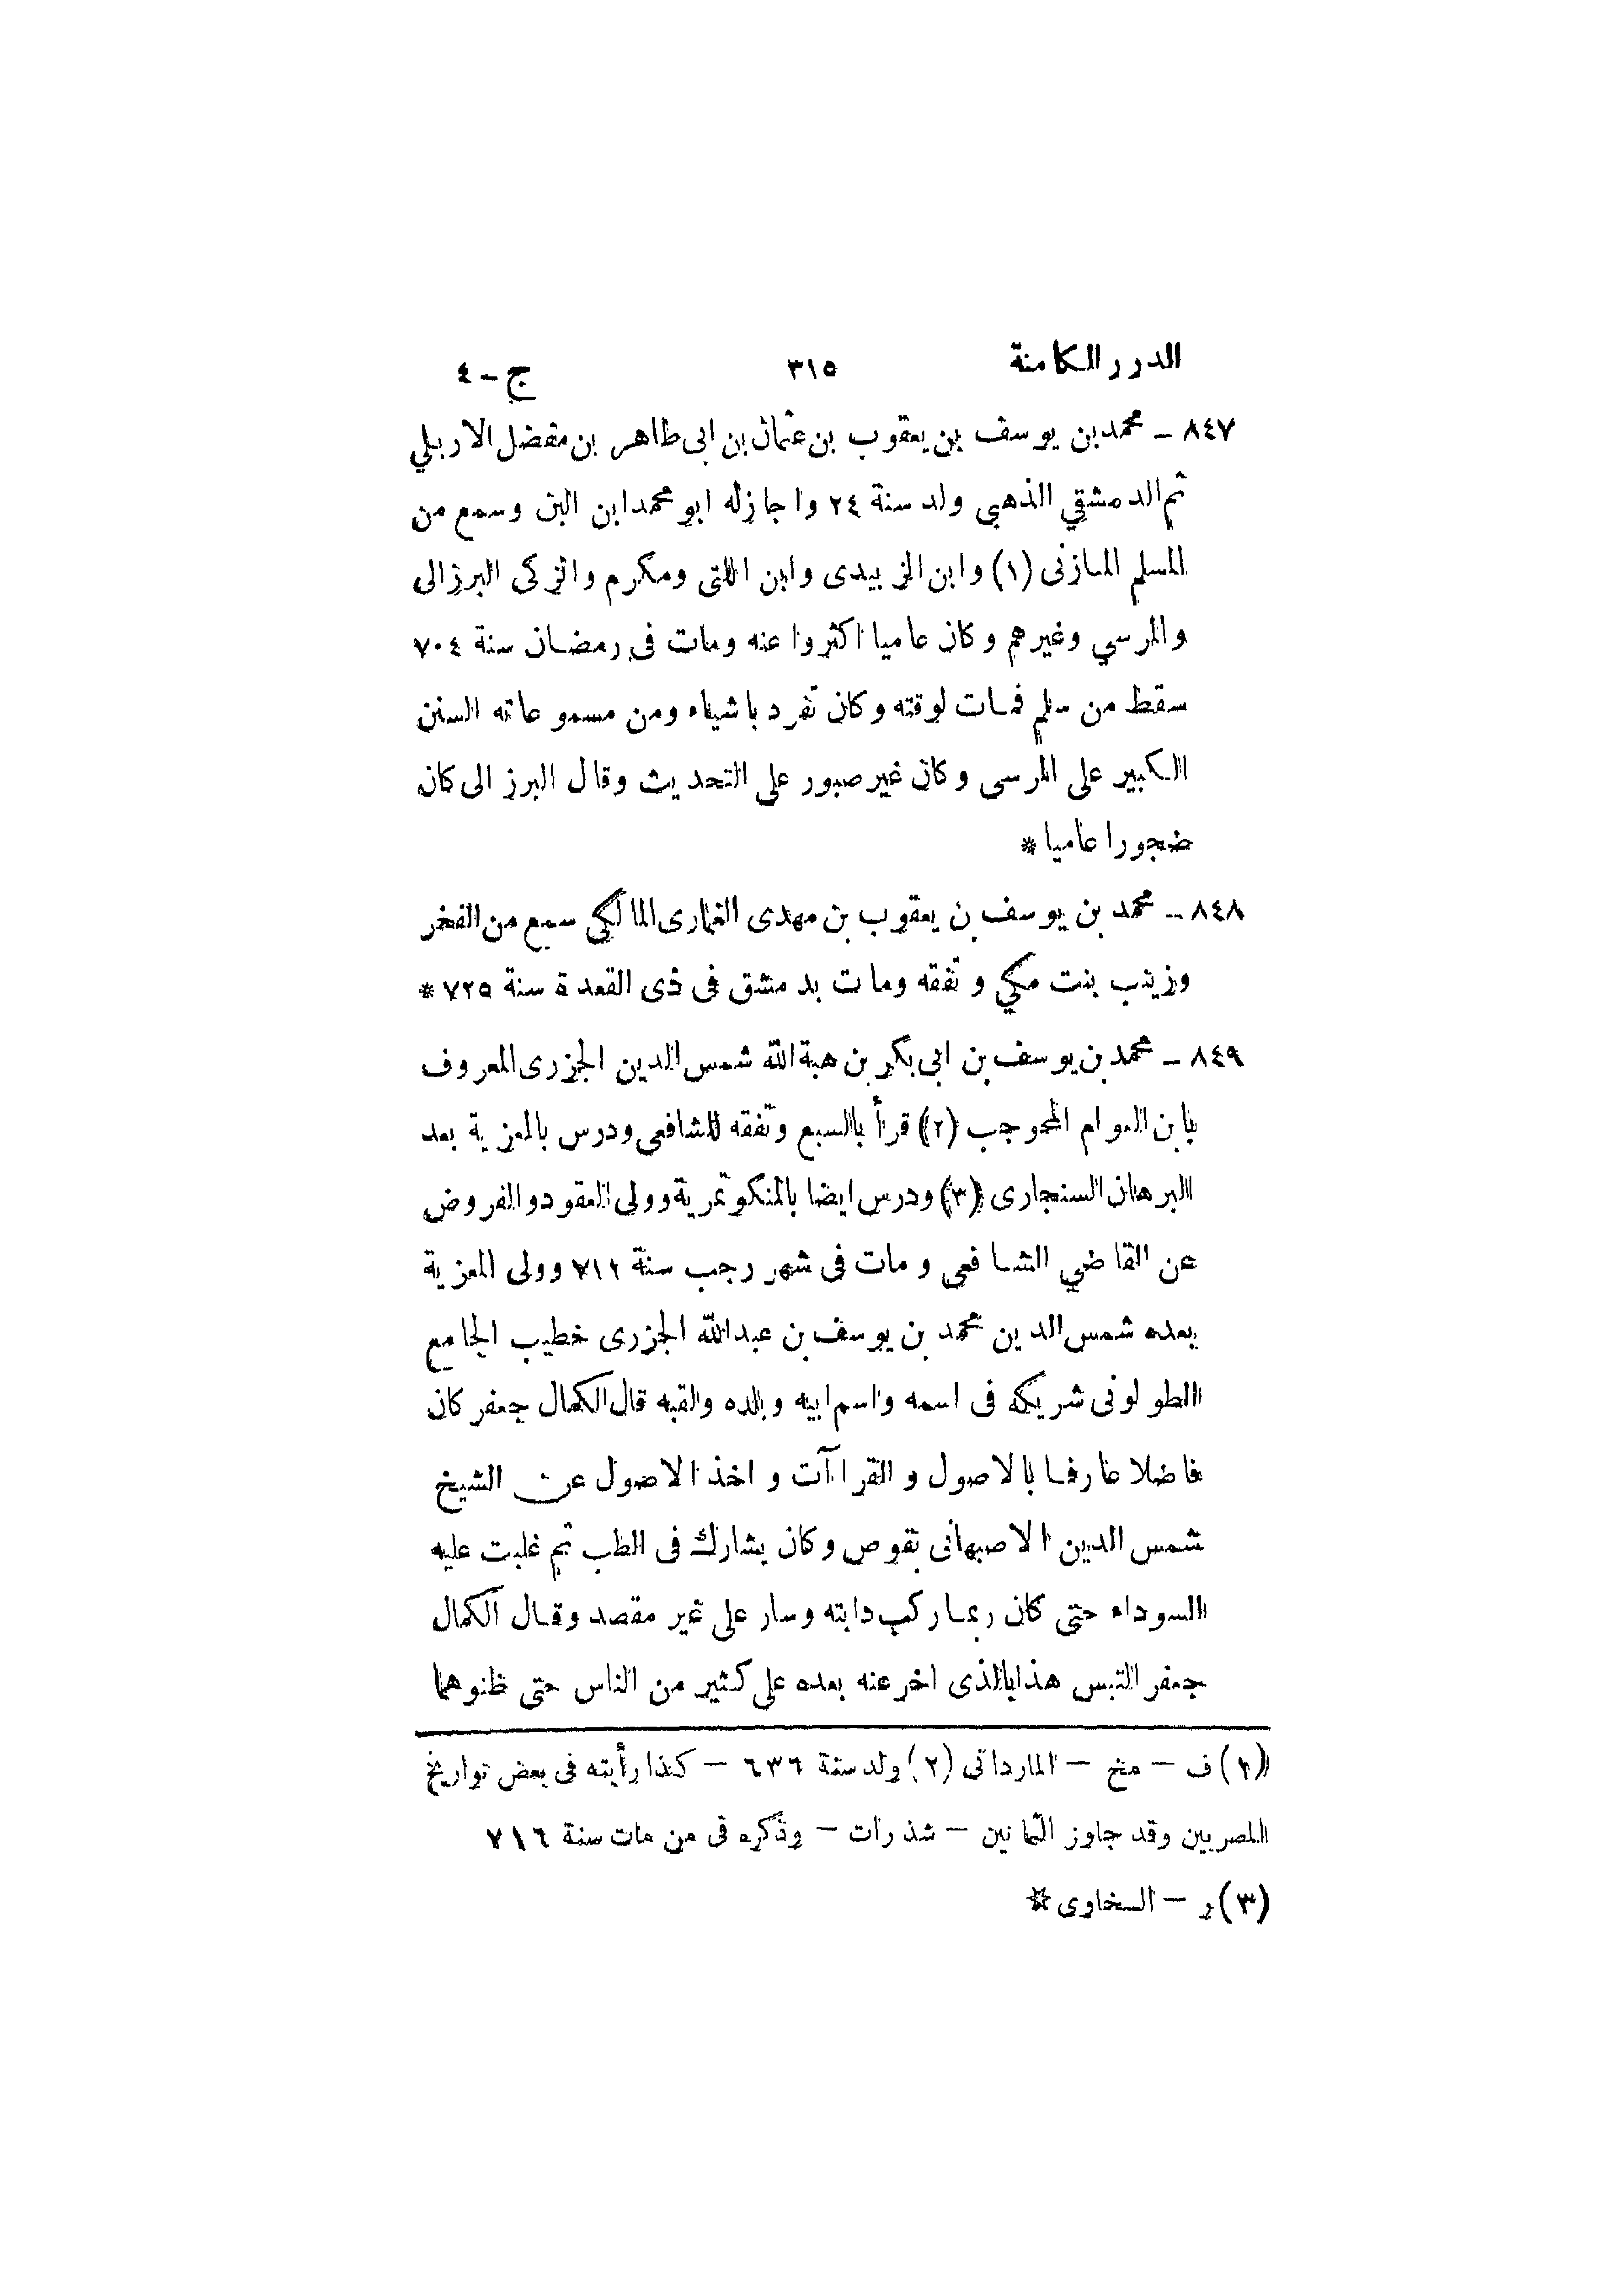 الدرر الكامنة ٣١٥ ج - ٤
٨٤٧ - محمد بن يوسف بن يعقوب بن عثمان بن ابى طاهر بن مفضل الاربلي
ثم الدمشقي الذهبي ولد سنة ٢٤ واجازله ابو محمد ابن البن وسمع من
المسلم المازنى (١) وابن الزبيدى وابن اللتى ومكرم والزكى البرزالى
والمرسي وغيرهم وكان عاميا اكثروا عنه ومات فى رمضان سنة ٧٠٤
سقط من سلم فمات لوقته وكان تفرد باشياء ومن مسموعاته السنن
الكبير على المرسى وكان غير صبور على التحديث وقال البرزالى كان
ضجورا عاميا *
٨٤٨ - محمد بن يوسف بن يعقوب بن مهدى الغمارى المالكي سمع من الفخر
وزينب بنت مكي وتفقه ومات بدمشق فى ذى القعدة سنة ٧٢٥ *
٨٤٩ - محمد بن يوسف بن ابى بكر بن هبة الله شمس الدين الجزرى المعروف
بابن العوام المحوجب (٢) قرأ بالسبع وتفقه للشافعى ودرس بالمعزية بعد
البرهان السنجارى (٣) ودرس ايضا بالمنكوتمرية وولى العقود والفروض
عن القاضي الشافعى ومات فى شهر رجب سنة ٧١٢ وولى المعزية
بعده شمس الدين محمد بن يوسف بن عبدالله الجزرى خطيب الجامع
الطولونى شريكه فى اسمه واسم ابيه وبلده ولقبه قال الكمال جعفر كان
فاضلا عارفا بالاصول والقراآت واخذ الاصول عن الشيخ
شمس الدين الاصبهانى بقوص وكان يشارك فى الطب ثم غلبت عليه
السوداء حتى كان ربما ركب دابته وسار على غير مقصد وقال الكمال
جعفر التبس هذا بالذى اخر عنه بعده على كثير من الناس حتى ظنوهما
(١) ف - مخ - الماردانى (٢) ولد سنة ٦٣٦ - كذا رأيته فى بعض تواريخ
المصريين وقد جاوز الثمانين - شذرات - وذكره فى من مات سنة ٧١٦
(٣) ر - السخاوى ☆